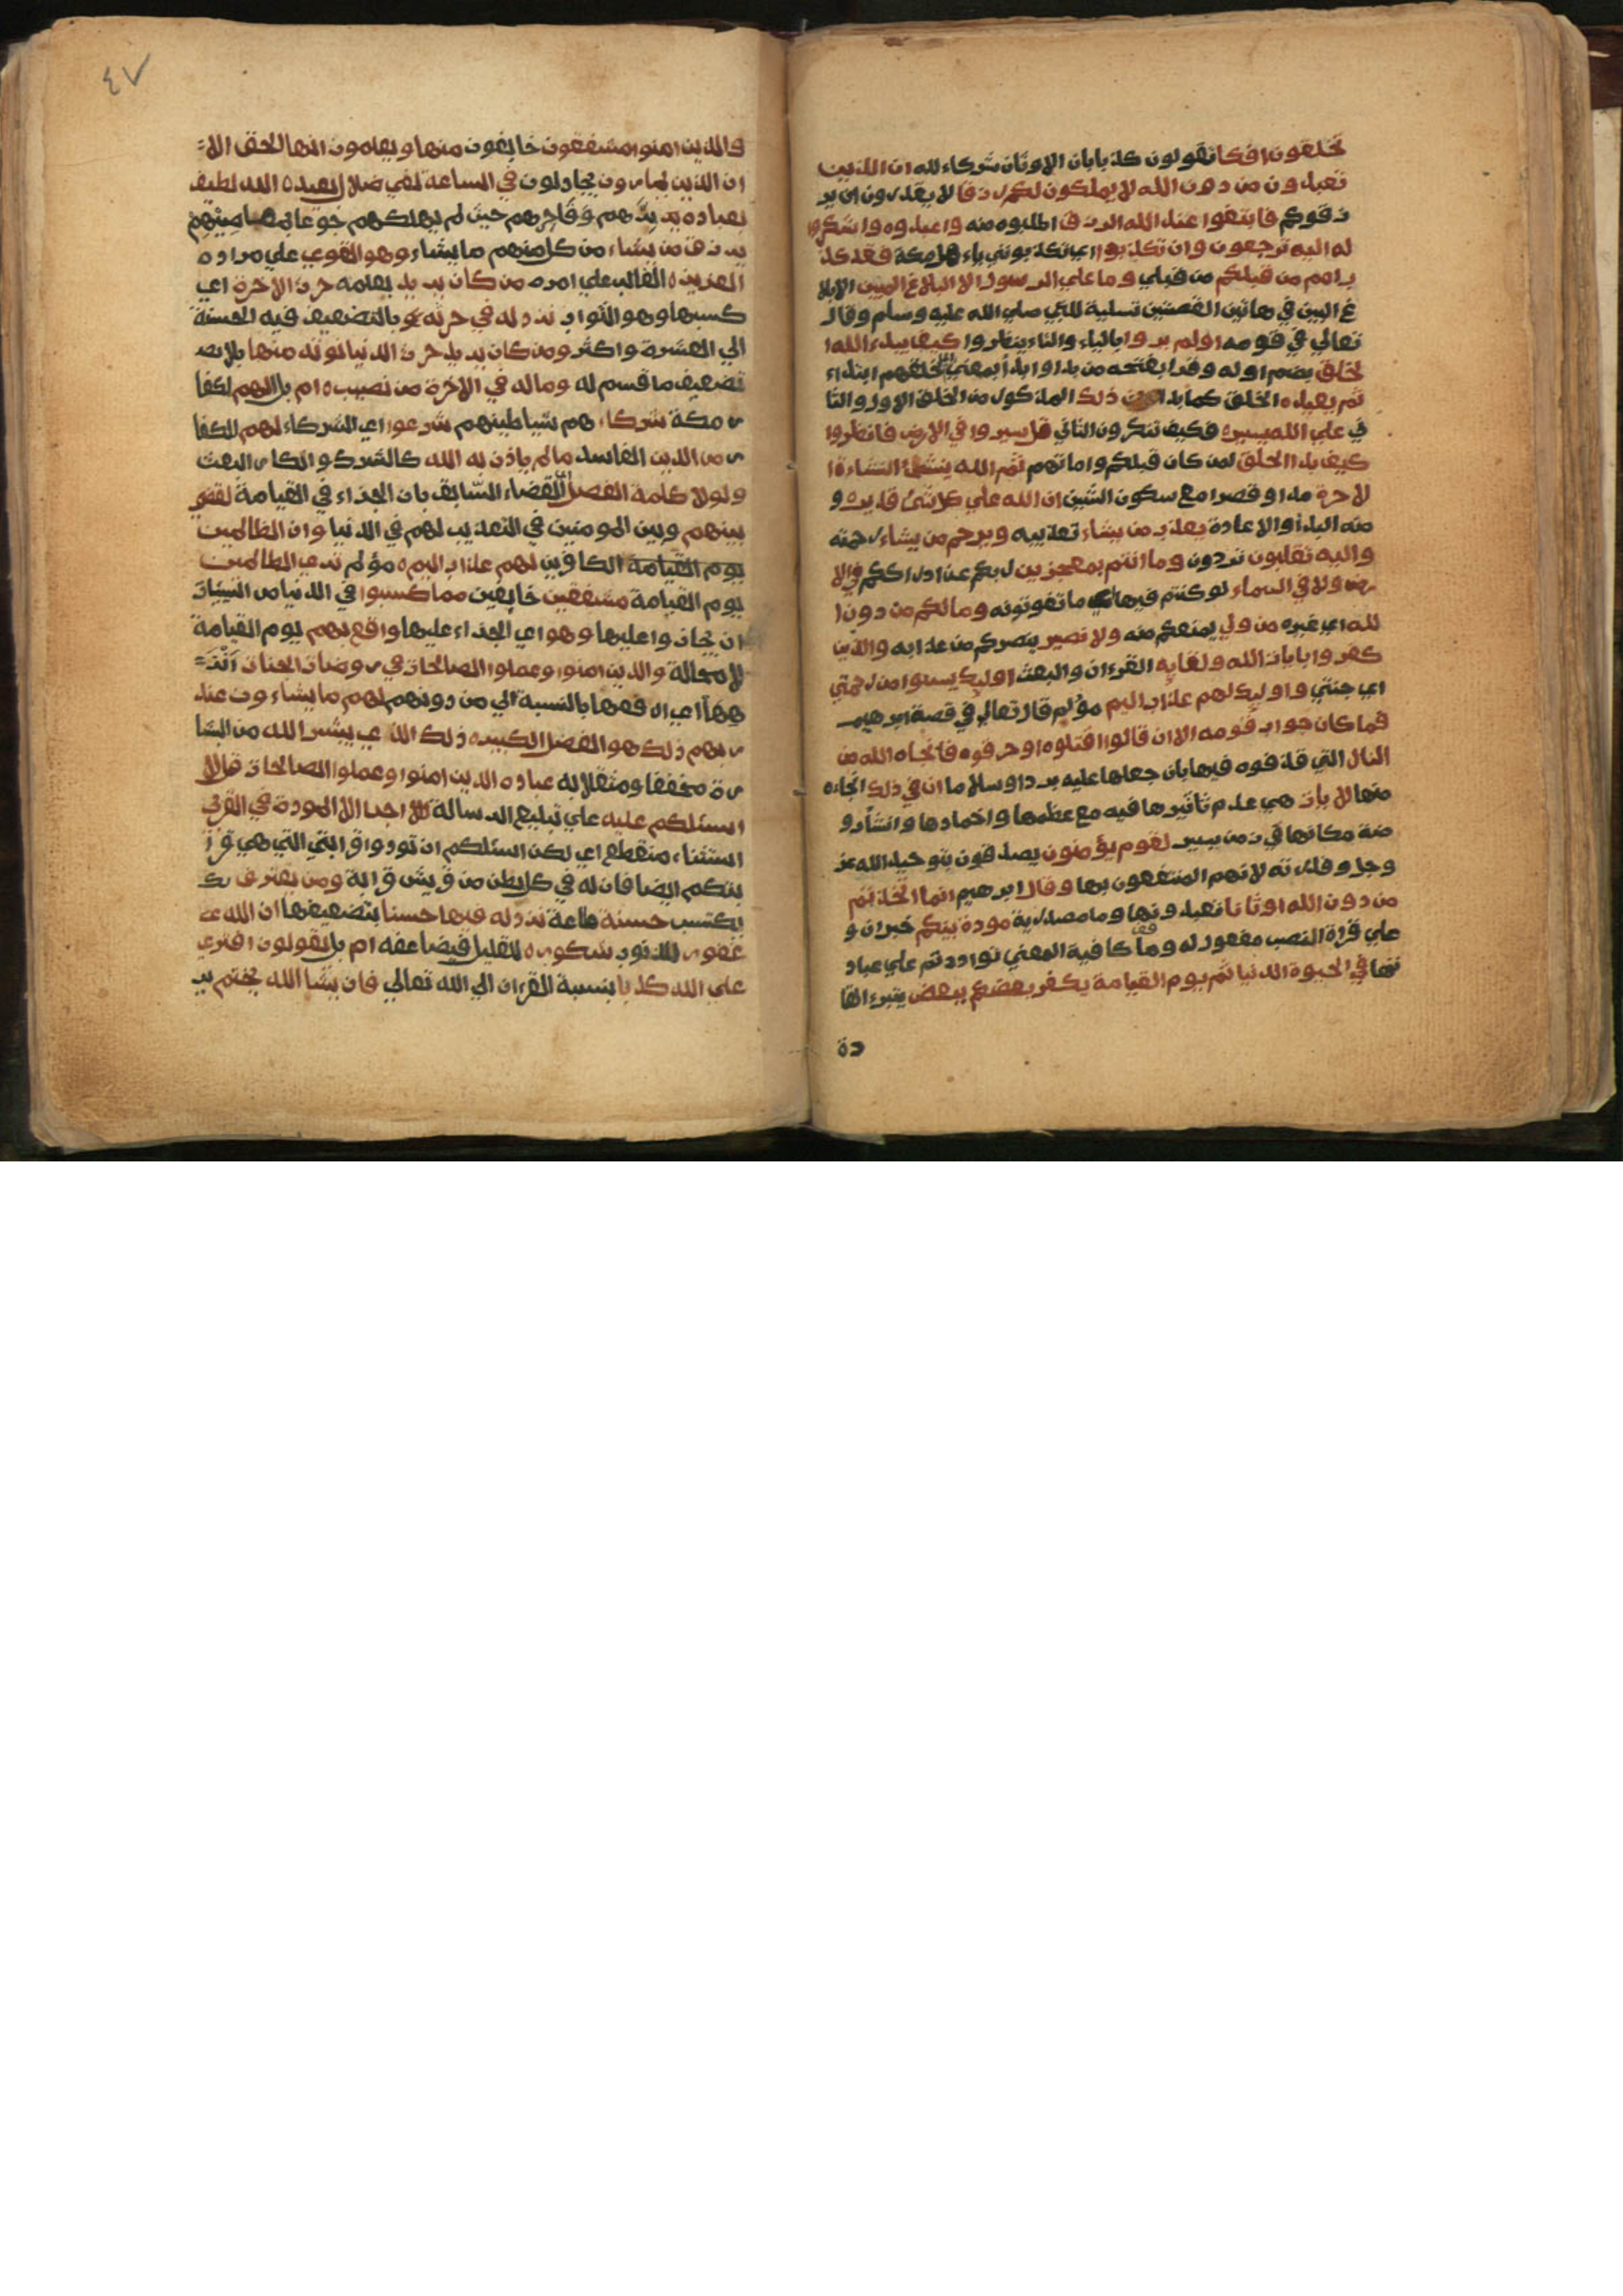 تخلقون افكا تقولون كذبا بان الاوثان شركاء لله ان الذين
تعبدون من دون الله لا يملكون لكم رزقا لا يقدرون ان ير
زقوكم فابتغوا عند الله الرزق اطلبوه منه واعبدوه واشكروا
له اليه ترجعون وان تكذبوا اي تكذبوني ياء هل مكة فقد كذ
ب امم من قبلكم من قبلي وما علي الرسول الا البلاغ المبين الابلا
غ البين في هاتين القصتين تسلية للنبي صلي الله عليه وسلم وقال
تعالي في قومه اولم يروا بالياء والتاء ينظروا كيف يبدء الله ا
لخلق بضم اوله وقرا بفتحه من بدا وابدأ بمعني اي خلقهم ابتداء
ثم يعيده الخلق كما بدا ان ذلك المذكور من الخلق الاول والثا
ني علي الله يسيره فكيف تنكرون الثاني قل سيروا في الارض فانظروا
كيف بدا الخلق لمن كان قبلكم واماتهم ثم الله ينشئ النشاءة ا
لاخرة مدا وقصرا مع سكون الشين ان الله علي كل شئ قديره و
منه البدأ والاعادة يعذب من يشاء تعذيبه ويرحم من يشاء رحمته
واليه تقلبون تردون وما انتم بمعجزين ربكم عن ادراككم في الا
رض ولا في السماء لو كنتم فيها اي ما تفوتونه ومالكم من دون ا
لله اي غيره من ولي يمنعكم منه ولا نصير ينصركم من عذابه والذين
كفروا بايات الله ولقايه القرءان والبعث اوليك يسوا من رحمتي
اي جنتي واوليك لهم عذاب اليم مؤلم قال تعالي في قصة ابرهيم
فما كان جواب قومه الا ان قالوا اقتلوه او حرقوه فانجاه الله من
النار التي قذفوه فيها بان جعلها عليه بردا وسلاما ان في ذلك انجاءه
منها لايات هي عدم تاثيرها فيه مع عظمها واخمادها وانشاء رو
ضة مكانها في زمن يسير لقوم يؤمنون يصدقون بتوحيد الله عز
وجل وقدرته لانهم المنتفعون بها وقال ابرهيم انما اتخذتم
من دون الله اوثانا تعبدونها وما مصدرية مودة بينكم خبر ان و
علي قراة النصب مفعول له وما كافة المعني تواددتم علي عباد
تها في الحيوة الدنيا ثم يوم القيامة يكفر بعضكم ببعض يتبرء القا
دة
٤٧
والذين امنوا مشفقون خايفون منها ويعلمون انها الحق الا
ان الذين يمارون يجادلون في الساعة لفي ضلال بعيده الله لطيف
بعباده برهم وفاجرهم حيث لم يهلكهم جوعا بمعاصيهم
يرزق من يشاء من كل منهم ما يشاء وهو القوي علي مراده
العزيزه الغالب علي امره من كان يريد بعلمه حرث الاخرة اي
كسبها وهو الثواب نزد له في حرثه بالتضعيف فيه الحسنة
الي العشرة واكثر ومن كان يريد حرث الدنيا نوته منها بلا
تضعيف ما قسم له وماله في الاخرة من نصيبه ام بل الهم لكفا
ر مكة شركاء هم شياطينهم شرعوا اي الشركاء لهم للكفا
ر من الدين الفاسد ما لم ياذن به الله كالشرك وانكار البعث
ولولا كلمة الفصل القضاء السابق بان الجزاء في القيامة لقضي
بينهم وبين المومنين في التعذيب لهم في الدنيا وان الظالمين
يوم القيامة الكافرين لهم عذاب اليم ه مؤلم تري الظالمين
يوم القيامة مشفقين خايفين مما كسبوا في الدنيا من السيئات
ان يجازوا عليها وهو اي الجزاء عليها واقع بهم يوم القيامة
لا محالة والذين امنوا وعملوا الصالحات في روضات الجنات انز
هها اي ارفعها بالنسبة الي من دونهم لهم ما يشاءون عند
ربهم ذلك هو الفضل الكبيره ذلك الذي يبشر الله من البشا
رة مخففا ومثقلا به عباده الذين امنوا وعملوا الصالحات قل لا
اسئلكم عليه علي تبليغ الرسالة اجرا الا المودة في القربي
استثناء منقطع اي لكن اسئلكم ان تودوا قرابتي التي هي قرا
بتكم ايضا فان له في كل بطن من قريش قرابة ومن يقترف
يكتسب حسنة طاعة نزد له فيها حسنا بتضعيفها ان الله
غفور للذنوب شكوره للقليل فيضاعفه ام بل يقولون افتري
علي الله كذبا بنسبة القران الي الله تعالي فان يشا الله يختم ير